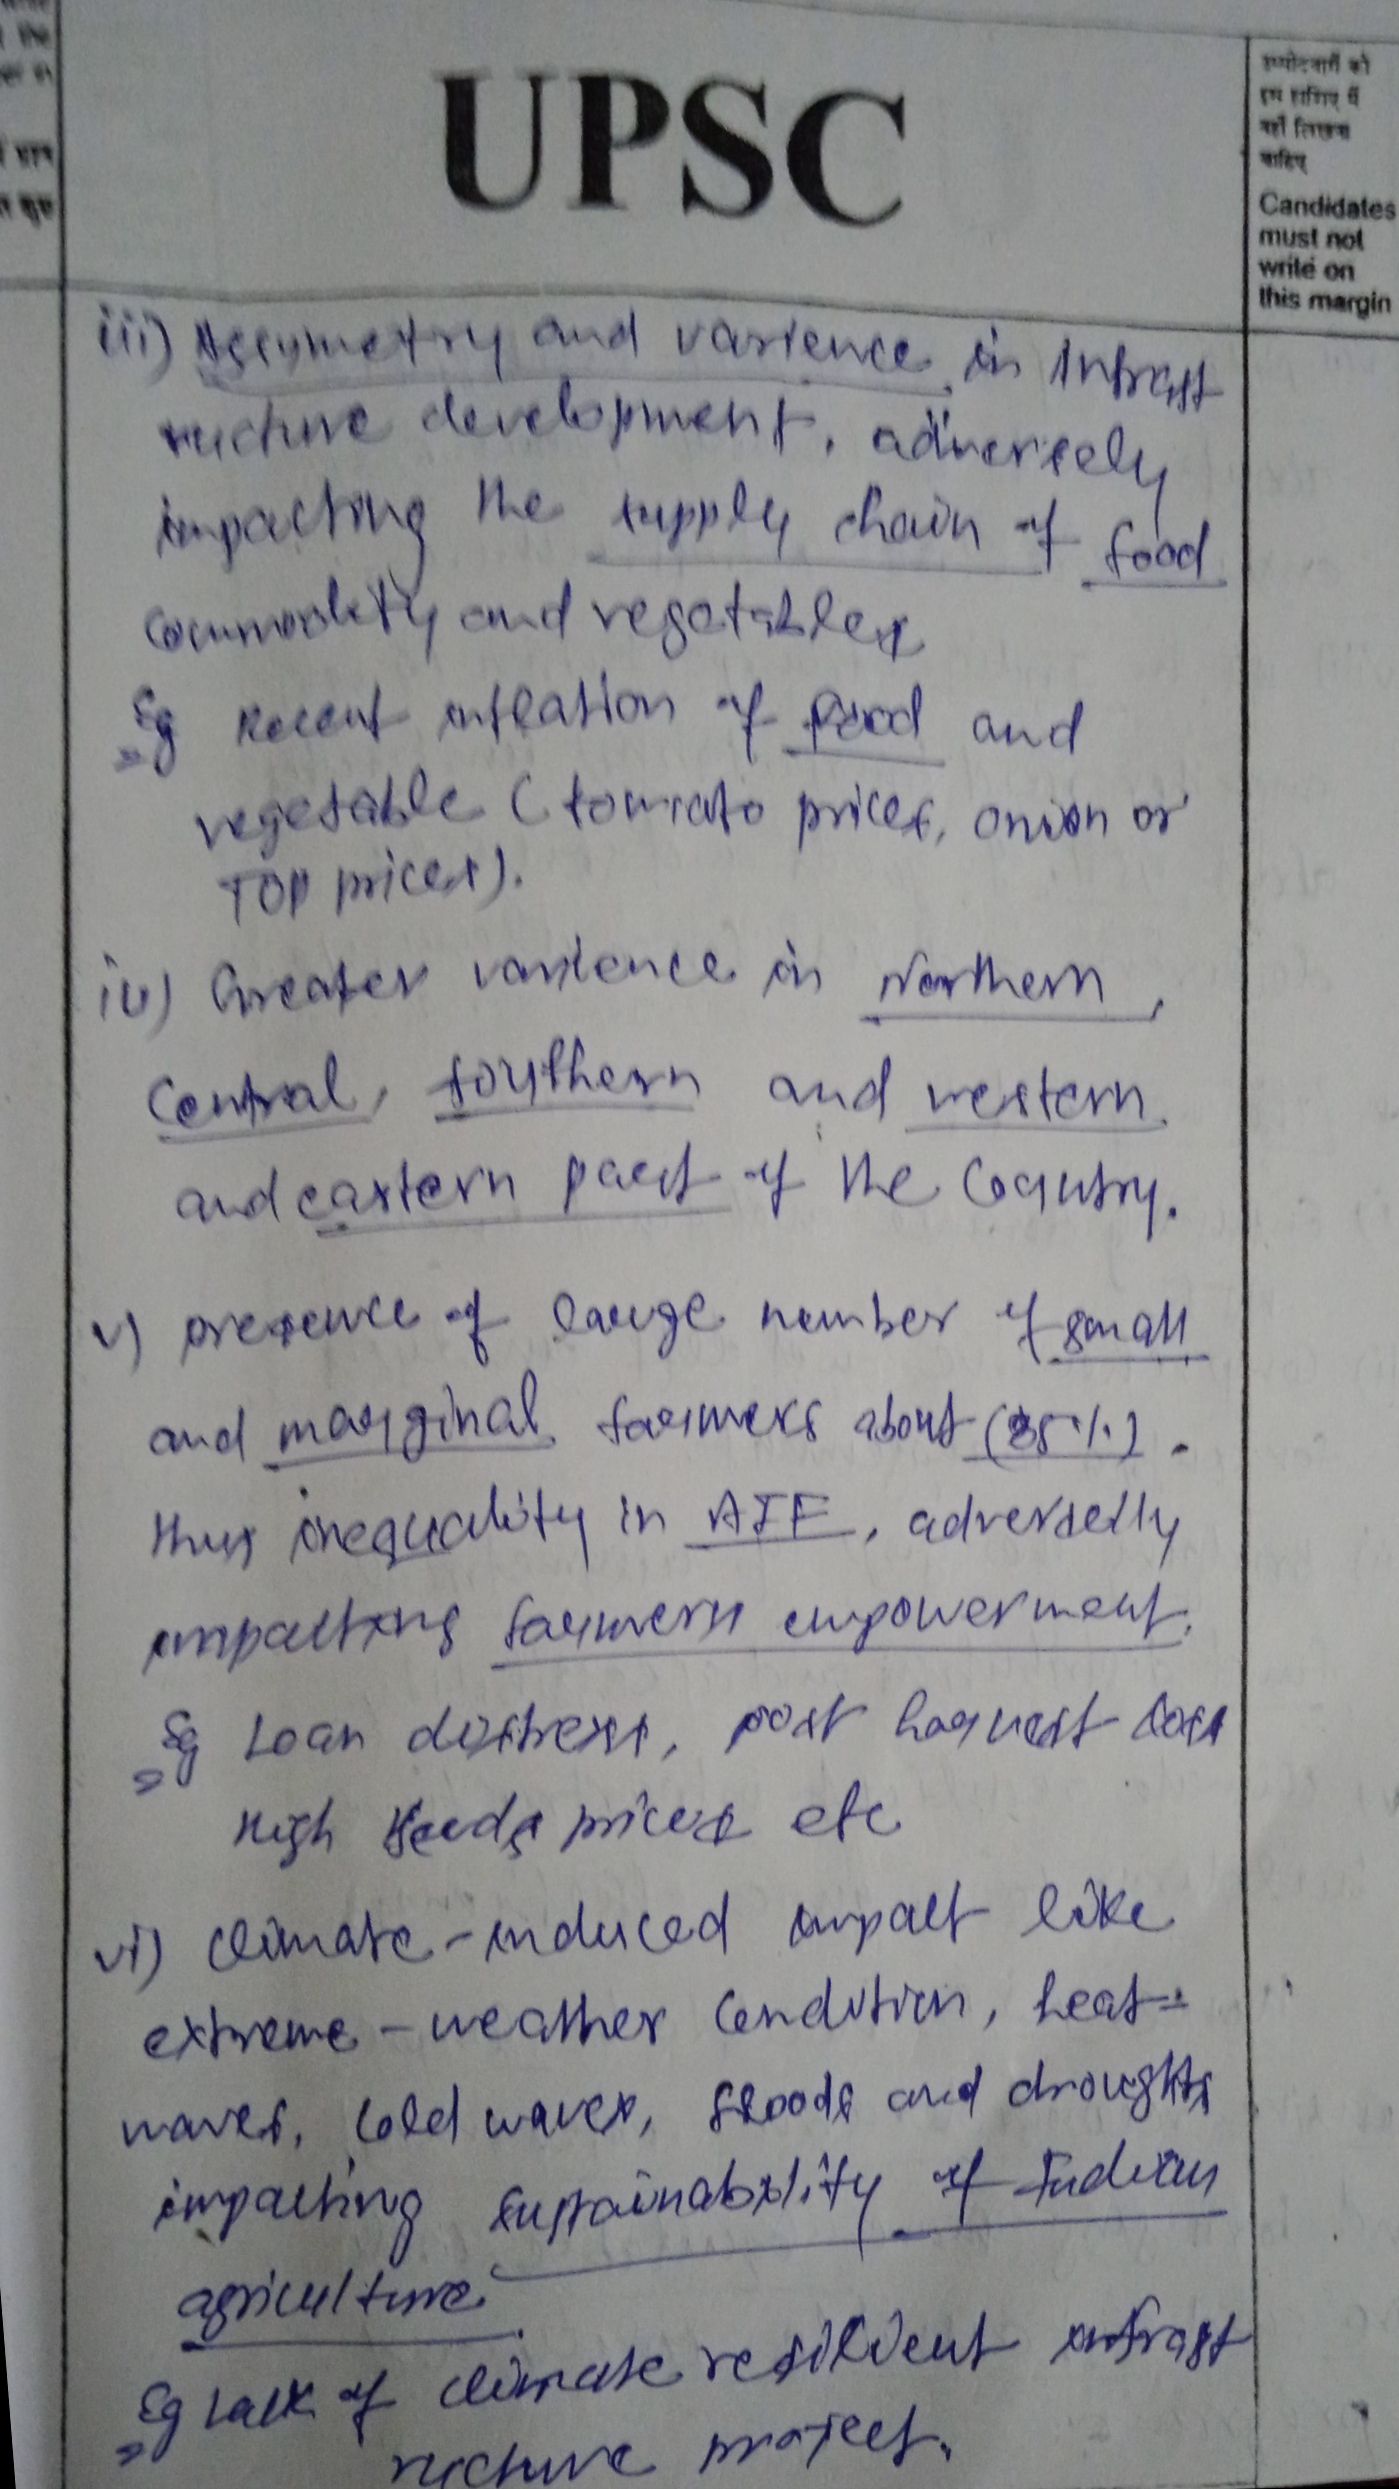 UPSC
उम्मीदवारों को
इस हाशिए में
नहीं लिखना
चाहिए
Candidates
must not
write on
this margin
iii) Assymetry and varience in Infrast
ructure development, adversely
impacting the supply chain of food
commodity and vegetables
Eg Recent inflation of food and
vegetable ( tomato prices, onion or
TOP prices).
iv) Greater varience in Northern,
Central, southern and western
and eastern part of the country.
v) presence of large number of small
and marginal farmers about (85%).
thus inequality in AIF, adverselly
impacting farmers empowerment.
Eg Loan distress, post harvest loss
High seeds prices etc
vi) climate-induced impact like
extreme-weather condition, heat-
waves, cold waves, floods and droughts
impacting sustainability of Indian
agriculture.
Eg Lack of climate resilient infrast
ructure project.